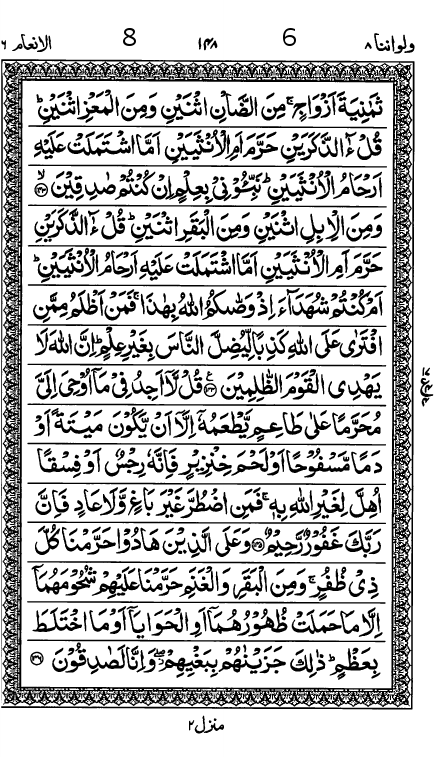 ولواننا ٨ 6 ١٤٨ 8 الانعام ٦
ثَمٰنِيَةَ اَزْوَاجٍ ۚ مِنَ الضَّاْنِ اثْنَيْنِ وَمِنَ الْمَعْزِ اثْنَيْنِ ؕ
قُلْ ءٰٓالذَّكَرَيْنِ حَرَّمَ اَمِ الْاُنْثَيَيْنِ اَمَّا اشْتَمَلَتْ عَلَيْهِ
اَرْحَامُ الْاُنْثَيَيْنِ ؕ نَبِّـُٔوْنِيْ بِعِلْمٍ اِنْ كُنْتُمْ صٰدِقِيْنَ ۙ﴿۱۴۳﴾
وَمِنَ الْاِبِلِ اثْنَيْنِ وَمِنَ الْبَقَرِ اثْنَيْنِ ؕ قُلْ ءٰٓالذَّكَرَيْنِ
حَرَّمَ اَمِ الْاُنْثَيَيْنِ اَمَّا اشْتَمَلَتْ عَلَيْهِ اَرْحَامُ الْاُنْثَيَيْنِ ؕ
اَمْ كُنْتُمْ شُهَدَآءَ اِذْ وَصّٰىكُمُ اللّٰهُ بِهٰذَا ۚ فَمَنْ اَظْلَمُ مِمَّنِ
افْتَرٰى عَلَى اللّٰهِ كَذِبًا لِّيُضِلَّ النَّاسَ بِغَيْرِ عِلْمٍ ؕ اِنَّ اللّٰهَ لَا
يَهْدِى الْقَوْمَ الظّٰلِمِيْنَ ﴿۱۴۴﴾ قُلْ لَّاۤ اَجِدُ فِيْ مَاۤ اُوْحِيَ اِلَيَّ
مُحَرَّمًا عَلٰى طَاعِمٍ يَّطْعَمُهٗۤ اِلَّاۤ اَنْ يَّكُوْنَ مَيْتَةً اَوْ
دَمًا مَّسْفُوْحًا اَوْ لَحْمَ خِنْزِيْرٍ فَاِنَّهٗ رِجْسٌ اَوْ فِسْقًا
اُهِلَّ لِغَيْرِ اللّٰهِ بِهٖ ۚ فَمَنِ اضْطُرَّ غَيْرَ بَاغٍ وَّلَا عَادٍ فَاِنَّ
رَبَّكَ غَفُوْرٌ رَّحِيْمٌ ﴿۱۴۵﴾ وَعَلَى الَّذِيْنَ هَادُوْا حَرَّمْنَا كُلَّ
ذِيْ ظُفُرٍ ۚ وَمِنَ الْبَقَرِ وَالْغَنَمِ حَرَّمْنَا عَلَيْهِمْ شُحُوْمَهُمَاۤ
اِلَّا مَا حَمَلَتْ ظُهُوْرُهُمَاۤ اَوِ الْحَوَايَاۤ اَوْ مَا اخْتَلَطَ
بِعَظْمٍ ؕ ذٰلِكَ جَزَيْنٰهُمْ بِبَغْيِهِمْ ۖ وَاِنَّا لَصٰدِقُوْنَ ﴿۱۴۶﴾
منزل ٢